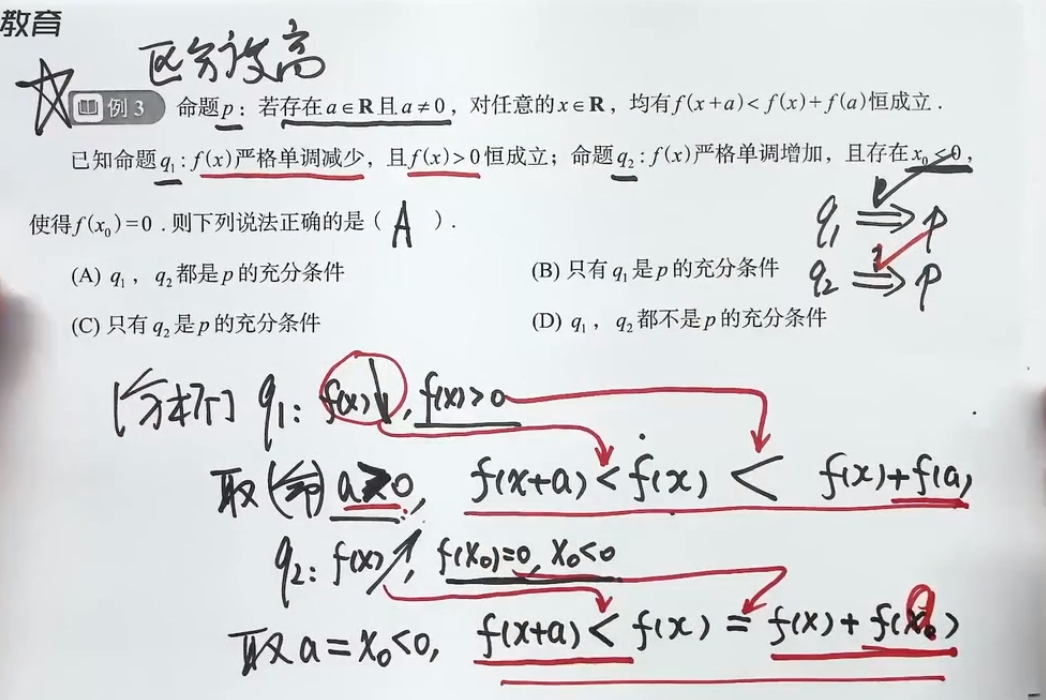 教育
区分度高
例3 命题p：若存在a∈R且a≠0，对任意的x∈R，均有f(x+a)<f(x)+f(a)恒成立．
已知命题q₁：f(x)严格单调减少，且f(x)>0恒成立；命题q₂：f(x)严格单调增加，且存在x₀≤0，
使得f(x₀)=0．则下列说法正确的是（ A ）．
q₁ ⇒ p
(A) q₁，q₂都是p的充分条件 (B) 只有q₁是p的充分条件
q₂ ⇒ p
(C) 只有q₂是p的充分条件 (D) q₁，q₂都不是p的充分条件
[分析] q₁: f(x)↓, f(x)>0
取(命) a>0, f(x+a)<f(x) < f(x)+f(a)
q₂: f(x)↗, f(x₀)=0, x₀<0
取a=x₀<0, f(x+a)<f(x) = f(x)+f(a)